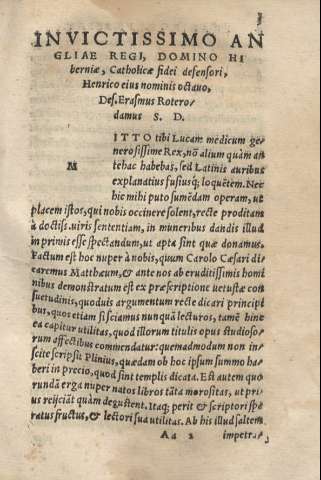 INVICTISSIMO AN
GLIAE REGI, DOMINO HI
berniæ, Catholicæ fidei defensori,
Henrico eius nominis octauo,
Des. Erasmus Rotero-
damus S. D.
M ITTO tibi Lucam medicum ge-
nerosissime Rex, nō alium quàm an
tehac habebas, sed Latinis auribus
explanatius fusiusq; loquētem. Nec
hic mihi puto sumēdam operam, ut
placem istos, qui nobis occinere solent, recte proditam
à doctiss. uiris sententiam, in muneribus dandis illud
in primis esse spectandum, ut apta sint quæ donamus.
Factum est hoc nuper à nobis, quum Carolo Cæsari di
caremus Matthæum, & ante nos ab eruditissimis homi
nibus demonstratum est ex præscriptione uetustæ con
suetudinis, quoduis argumentum recte dicari principi
bus, quos etiam si sciamus nunquā lecturos, tamē hinc
ea capitur utilitas, quod illorum titulis opus studioso-
rum affectibus commendatur: quemadmodum non in
scite scripsit Plinius, quædam ob hoc ipsum summo ha-
beri in precio, quod sint templis dicata. Est autem quo
rundā erga nuper natos libros tāta morositas, ut pri-
us reijciāt quàm degustent. Itaq; perit & scriptori spe
ratus fructus, & lectori sua utilitas. Ab his illud saltem
Aa 2 impetrat